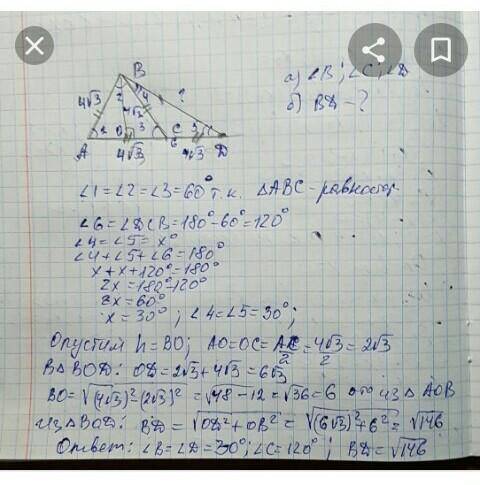 B
4√3
2
4
?
4√3
1
O
3
C
6
5
A
4√3
4√3
D
а) ∠B; ∠C; ∠D
б) BD - ?
∠1=∠2=∠3=60° т.к. ΔABC - равностор
∠6=∠DCB=180°-60°=120°
∠4=∠5=x°
∠4+∠5+∠6=180°
x+x+120°=180°
2x=180°-120°
2x=60°
x=30° ; ∠4=∠5=30°;
Опустим h=BO; AO=OC=AC/2=4√3/2=2√3
В ΔBOD: OD=2√3+4√3=6√3
BO=√(4√3)²-(2√3)²=√48-12=√36=6 это из ΔAOB
из ΔBOD: BD=√OD²+OB²=√(6√3)²+6²=√146
Ответ: ∠B=∠D=30°; ∠C=120°; BD=√146